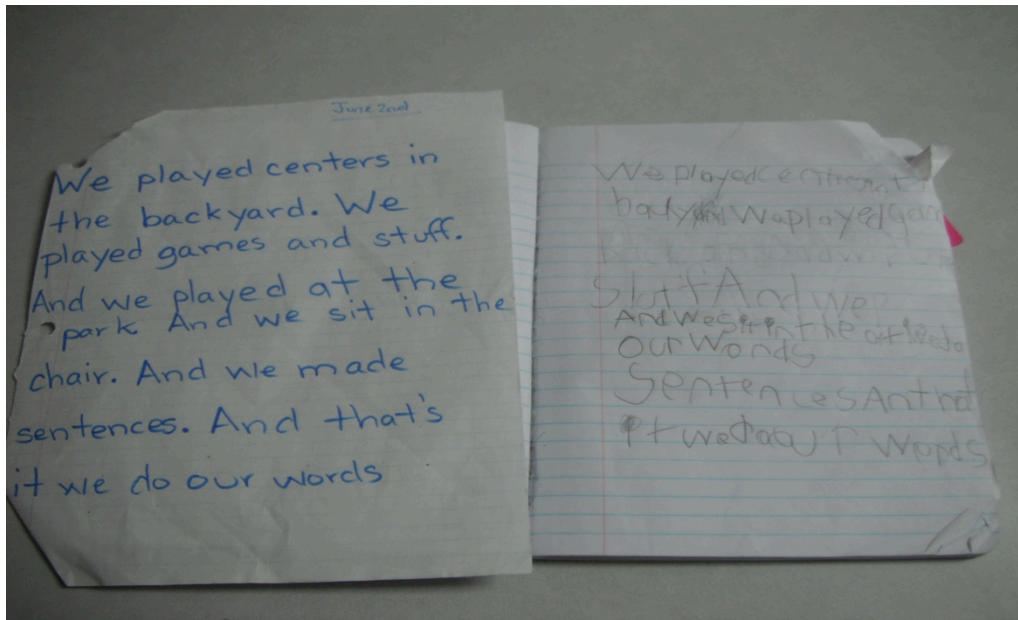 June 2nd
We played centers in
the backyard. We
played games and stuff.
And we played at the
park And we sit in the
chair. And we made
sentences. And that's
it we do our words
We played
We played
And we
And we sit in the
our words
Sentences An that
it we do our words